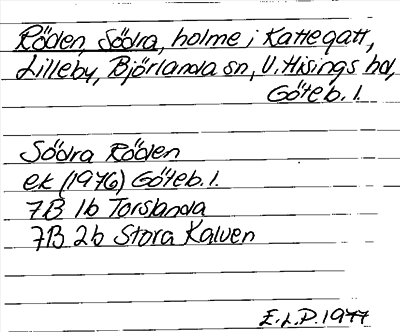 Röden, Södra, holme i Kattegatt,
Lilleby, Björlanda sn, V. Hisings hd,
Göteb. l.
Södra Röden
ek (1976) Göteb. l.
7B 1b Torslanda
7B 2b Stora Kalven
E.L.P. 1977